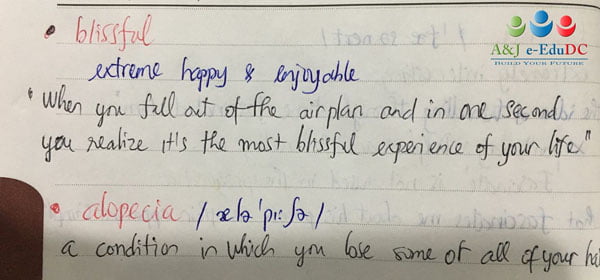 • blissful
A&J e-EduDC
BUILD YOUR FUTURE
extreme happy & enjoyable
"When you fall out of the airplan and in one second
you realize it's the most blissful experience of your life"
• alopecia /ælə'pi:ʃə/
a condition in which you lose some of all of your hai